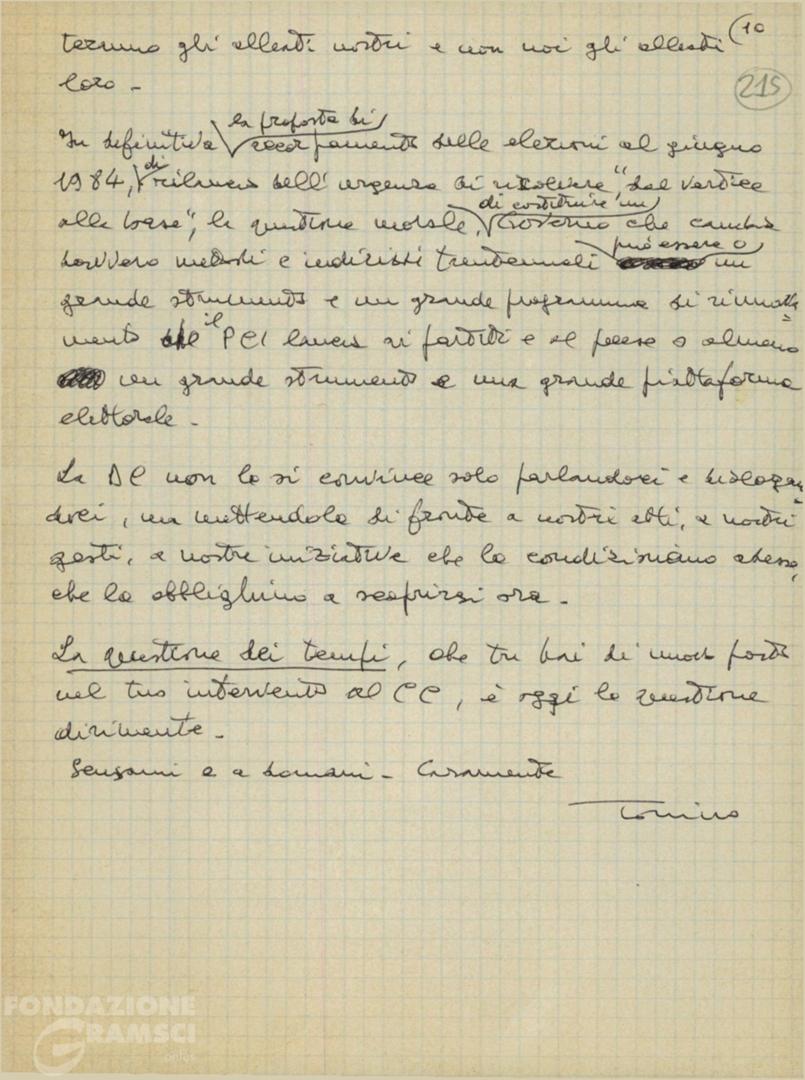 (10
teranno gli alleati nostri e non noi gli alleati
loro -
215
la proposta di
In definitiva accorpamento delle elezioni al giugno
di
1984, rilancio dell'urgenza di risolvere, "dal vertice
di costituire un
alla base", la questione morale, Governo che cambi
può essere o
davvero metodi e indirizzi trentennali un
grande strumento e un grande programma di rinno=
il
mento PCI lancia ai partiti e al paese o almeno
un grande strumento e una grande piattaforma
elettorale -
La DC non la si convince solo parlandoci e dialogan=
doci, ma mettendola di fronte a nostri atti, a nostri
gesti, a nostre iniziative che la condizionino adesso,
che la obblighino a scoprirsi ora -
La questione dei tempi, che tu hai di nuovo posto
nel tuo intervento al CC, è oggi la questione
dirimente -
Scusami e a domani - Caramente
Tonino
FONDAZIONE
GRAMSCI
onlus